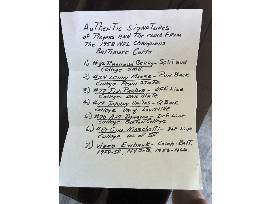 Authentic Signatures
of Players and the coach from
The 1958 NFL Champions
Baltimore Colts
1) #82 Raymond Berry - Split end
College SMU
2) #24 Lenny Moore - Run. Back
College Penn State
3) #77 Jim Parker - OFF Line
College Ohio State
4) #19 Johnny Unitas - Q Back
College U. of Louisville
5) #70 Art Donovan - Def Line
College Boston College
6) #89 Gino Marchetti - Def Line
College, U. of SF
7) Weeb Ewbank - Coach - Balt.